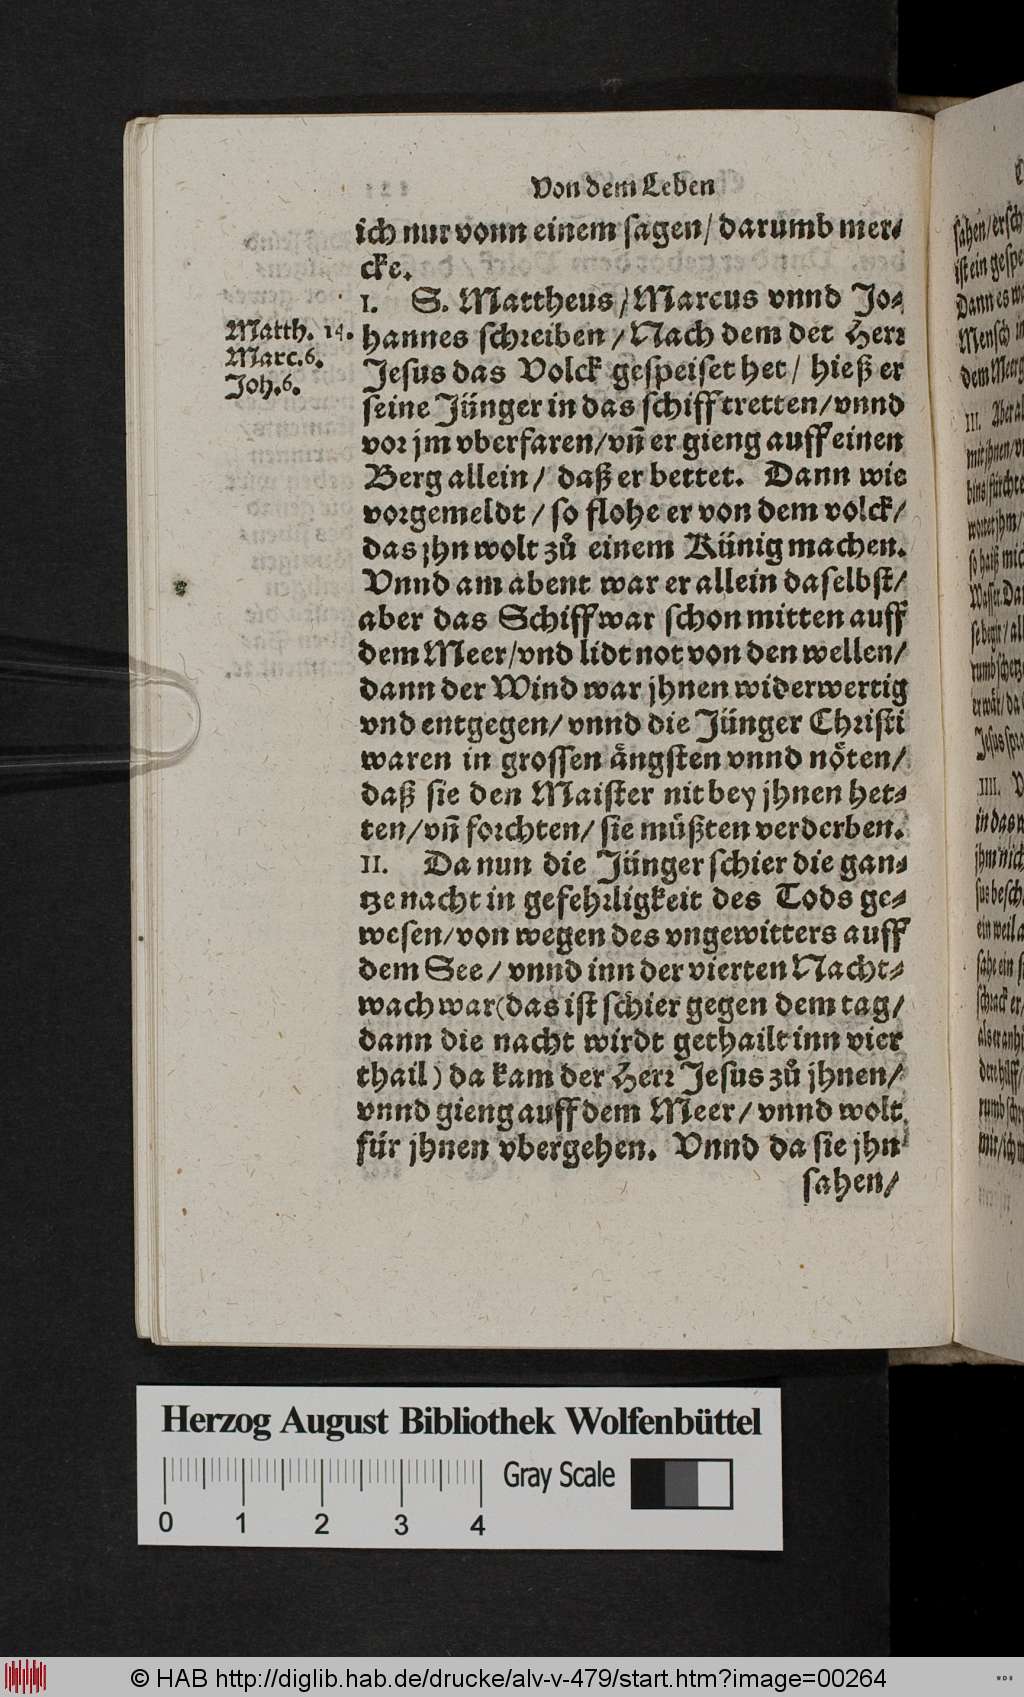 Von dem Leben
ich nur vonn einem sagen/ darumb mer-
cke.
I. S. Mattheus/ Marcus vnnd Jo-
Matth. 14.
Marc. 6.
Joh. 6.
hannes schreiben/ Nach dem det Herr
Jesus das Volck gespeiset het/ hieß er
seine Jünger in das schiff tretten/ vnnd
vor jm vberfaren/ vñ er gieng auff einen
Berg allein/ daß er bettet. Dann wie
vorgemeldt/ so flohe er von dem volck/
das jhn wolt zů einem Künig machen.
Vnnd am abent war er allein daselbst/
aber das Schiff war schon mitten auff
dem Meer/ vnd lidt not von den wellen/
dann der Wind war jhnen widerwertig
vnd entgegen/ vnnd die Jünger Christi
waren in grossen ängsten vnnd nöten/
daß sie den Maister nit bey jhnen het-
ten/ vñ forchten/ sie müßten verderben.
II. Da nun die Jünger schier die gan-
tze nacht in gefehrligkeit des Tods ge-
wesen/ von wegen des vngewitters auff
dem See/ vnnd inn der vierten Nacht-
wach war (das ist schier gegen dem tag/
dann die nacht wirdt gethailt inn vier
thail) da kam der Herr Jesus zů jhnen/
vnnd gieng auff dem Meer/ vnnd wolt
für jhnen vbergehen. Vnnd da sie jhn
sahen/
sahen/
ist ein
Dann es
Mensch
dem Meer
III. Aber
mit jhnen/
Jesus
IIII.
in das
Herzog August Bibliothek Wolfenbüttel
Gray Scale
0 1 2 3 4
© HAB http://diglib.hab.de/drucke/alv-v-479/start.htm?image=00264